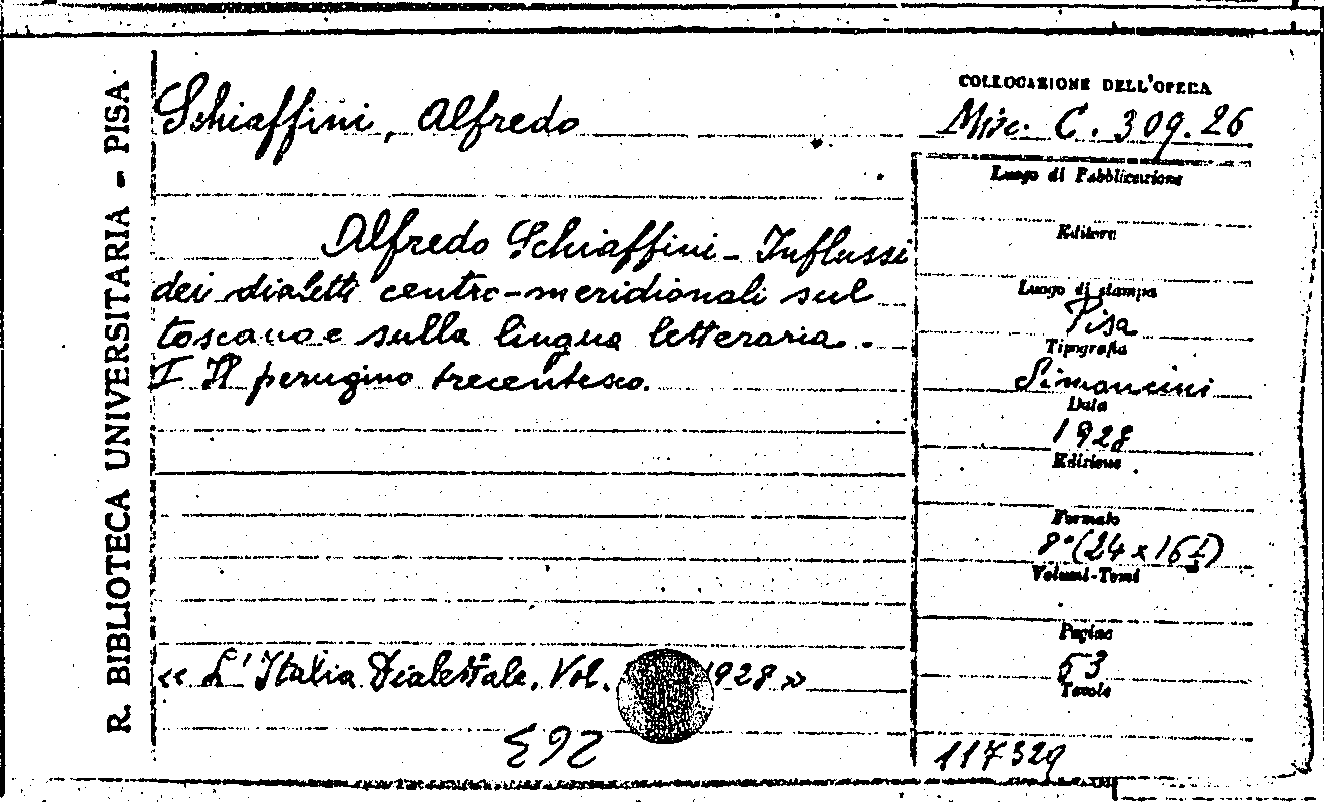 R. BIBLIOTECA UNIVERSITARIA - PISA
Schiaffini, Alfredo
Alfredo Schiaffini - Influssi
dei dialetti centro-meridionali sul
toscano e sulla lingua letteraria.
I Il perugino trecentesco.
« L'Italia Dialettale. Vol. 1928 »
COLLOCAZIONE DELL'OPERA
Misc. C. 309.26
Luogo di Pubblicazione
Editore
Luogo di stampa
Pisa
Tipografia
Simoncini
Data
1928
Edizione
Formato
8° (24 x 16
Volumi-Tomi
Pagine
53
Tavole
117329